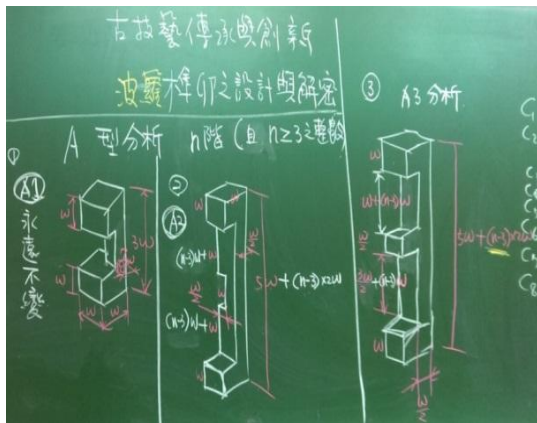 古技藝傳承與創新
波羅榫卯之設計與解密
A 型分析 n階 (且 n≥3之整數)
①
A1
永遠不變
W
W
3W
W
W
②
A2
W
(n-3)W+W
W/2
W
(n-3)W+W
W
5W+(n-3)×2W
③ A3分析
W
W+(n-3)W
W/2
+(n-3)W
W
W/2
5W+(n-3)×2W